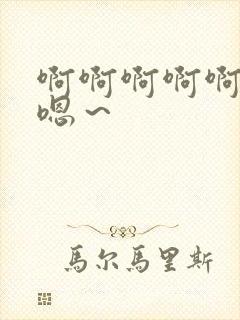 啊啊啊啊啊
嗯～
馬尔馬里斯